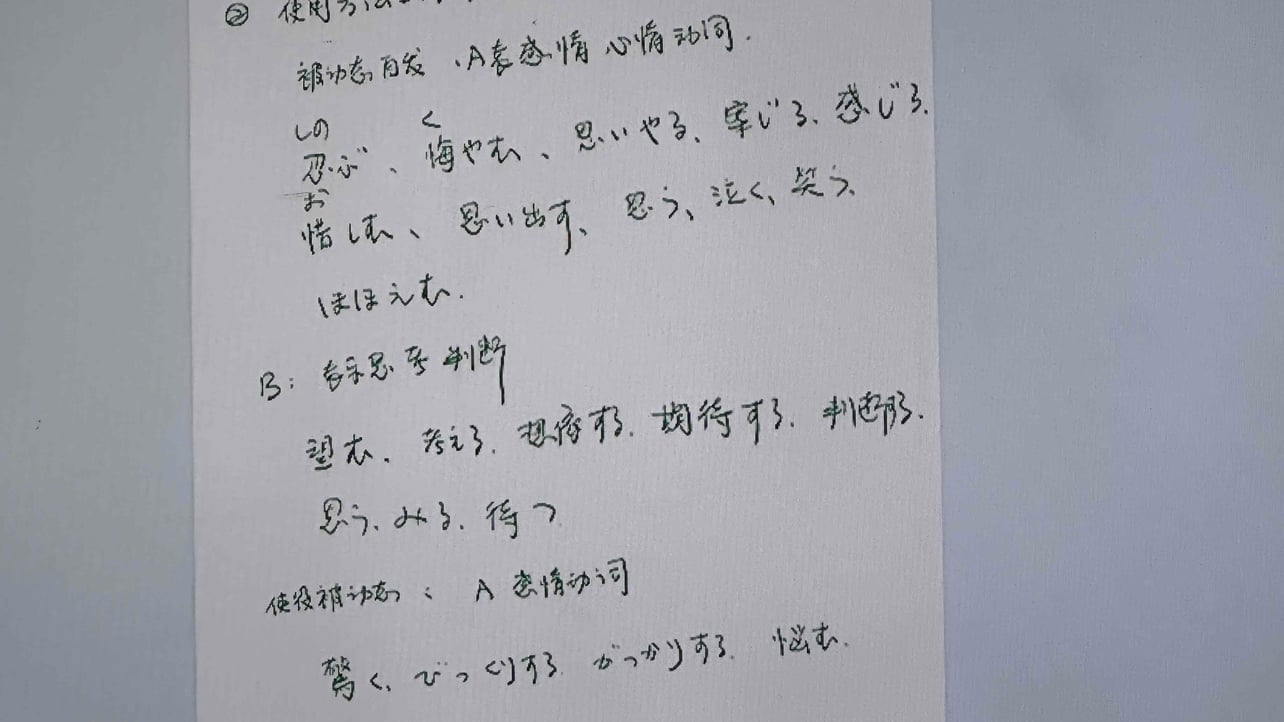 ② 使用方法
被动态自发、A表感情 心情动词.
しの く
忍ぶ、悔やむ、思いやる、案じる、感じる.
お
惜しむ、思い出す、思う、泣く、笑う、
ほほえむ.
B: 表示思考判断
望む、考える、想像する、期待する、判断する.
思う、みる、待つ
使役被动态、 A 感情动词
驚く、びっくりする がっかりする 悩む.